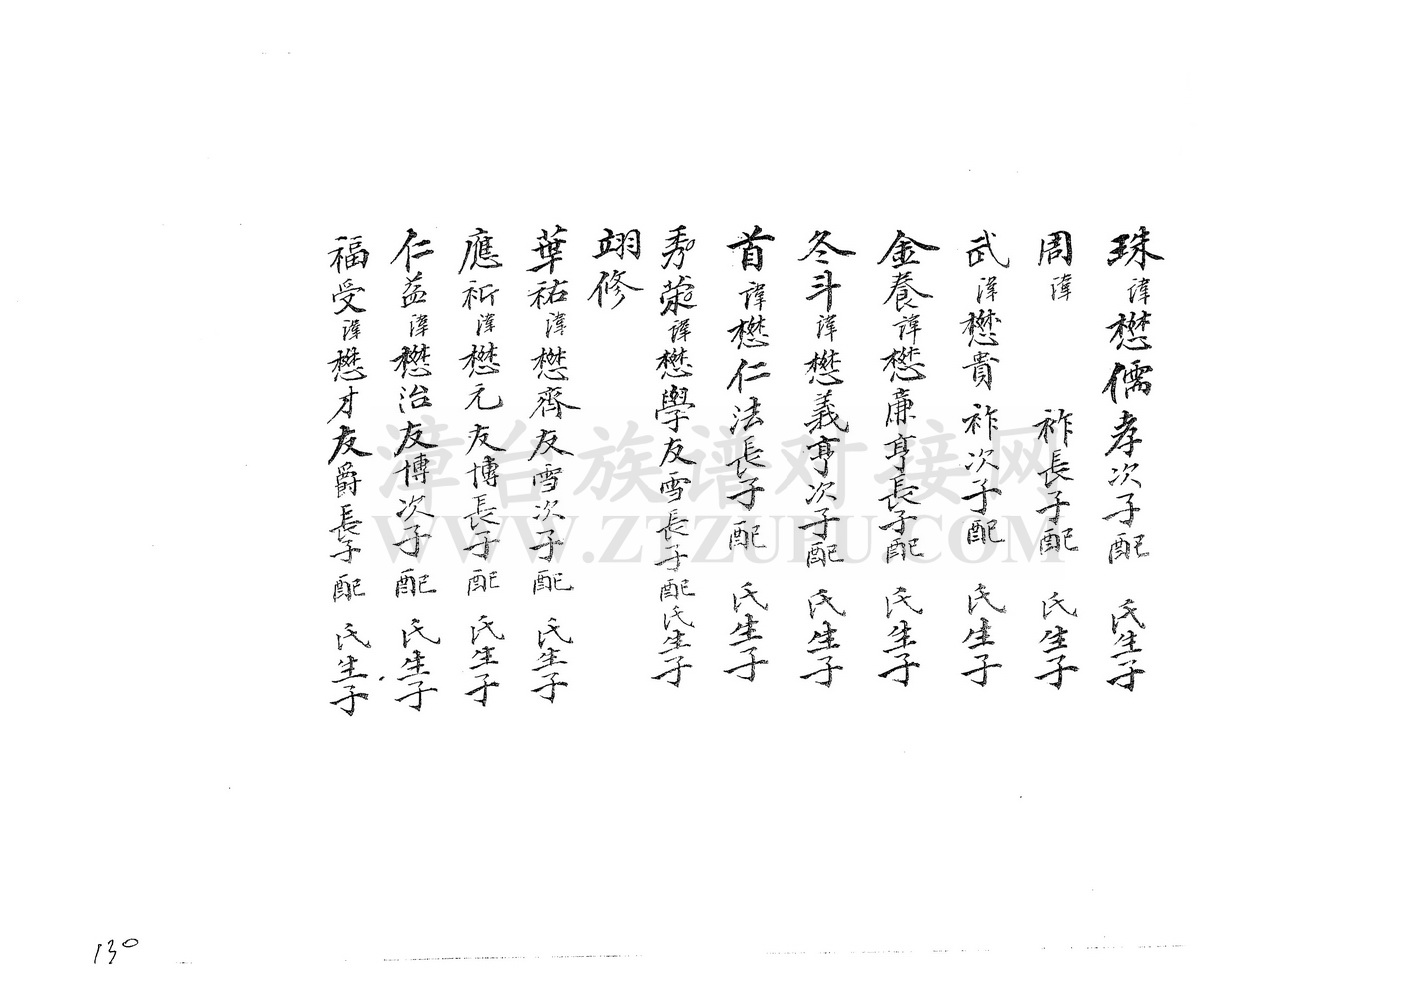 珠諱懋儒孝次子配 氏生子
周諱 祚長子配 氏生子
武諱懋貴 祚次子配 氏生子
金養諱懋廉亨長子配 氏生子
冬斗諱懋義亨次子配 氏生子
首諱懋仁法長子配 氏生子
秀榮諱懋學友雪長子配氏生子
翊修
華祐諱懋齊友雪次子配 氏生子
應祈諱懋元友博長子配 氏生子
仁益諱懋治友博次子配 氏生子
福受諱懋才友爵長子配 氏生子
漳台族谱对接网
WWW.ZTZUPU.COM
130